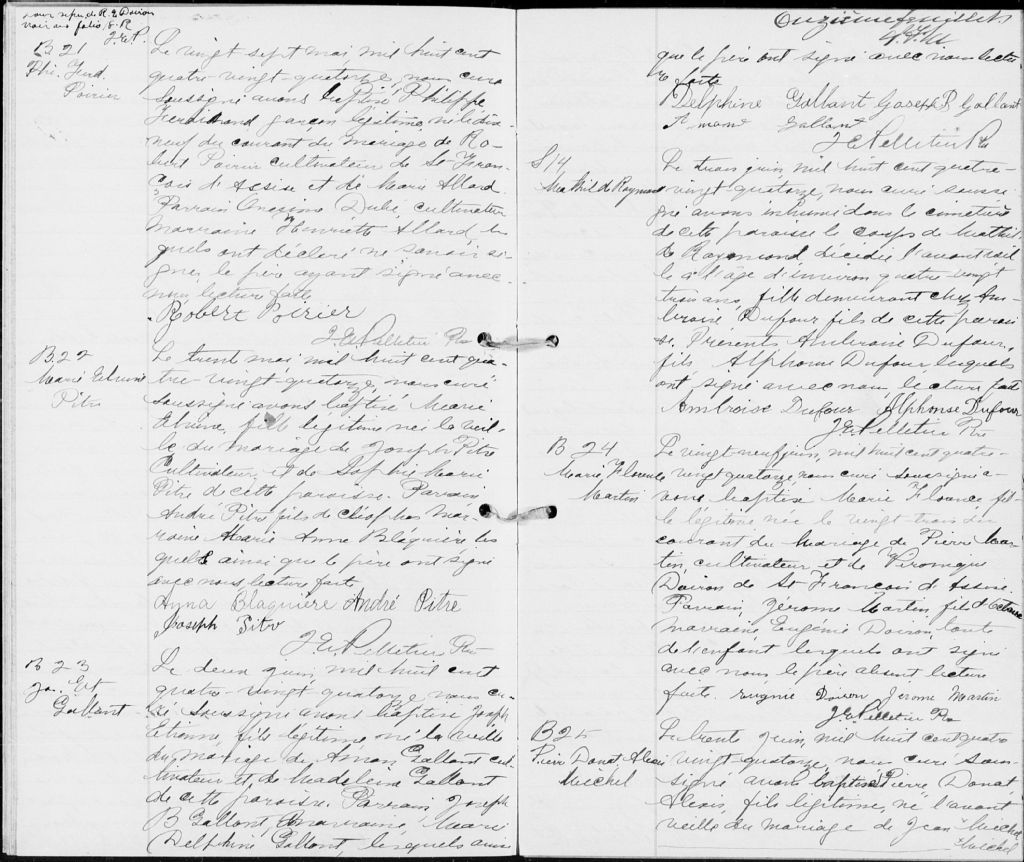 B 21
Phi. Ferd.
Poirier
Le vingt sept mai mil huit cent
quatre-vingt-quatorze, nous curé
soussigné avons baptisé Philippe
Ferdinand garçon légitime né le dix-
neuf du courant du mariage de Ro-
bert Poirier cultivateur de St Fran-
çois d'Assise et de Marie Allard.
Parrain Onesime Dubé, cultivateur
marraine Henriette Allard les
quels ont déclaré ne savoir si-
gner, le père ayant signé avec
nous, lecture faite
Robert Poirier
J. E. Pelletier Ptre
B. 22
Marie Etiennie
Pitre
Le trente mai mil huit cent qua-
tre-vingt-quatorze, nous curé
soussigné avons baptisé Marie
fille légitime née la veil-
le du mariage de Joseph Pitre
Cultivateur, et de Sophie Marie
Pitre de cette paroisse. Parrain
André Pitre fils de Cléophas mar-
raine Marie Anne Blaquière les
quels ainsi que le père ont signé
avec nous lecture faite
Anna Blaquière André Pitre
Joseph Pitre
J. E. Pelletier Ptre
B 23
Jos. Et
Gallant
Le deux juin, mil huit cent
quatre-vingt quatorze, nous cu-
ré soussigné avons baptisé Joseph
Etienne, fils légitime né la veille
du mariage de Gallant cul-
tivateur et de Madeleine Gallant
de cette paroisse. Parrain Joseph
B Gallant, marraine, Marie
Delphine Gallant, lesquels ainsi
Onzième feuillet
que le père ont signé avec nous lectu-
re faite
Delphine Gallant Joseph B Gallant
Gallant
J E Pelletier Ptre
S 14
Mathilde Raymond
Le trois juin, mil huit cent quatre-
vingt quatorze, nous curé soussi-
gné avons inhumé dans le cimetière
de cette paroisse le corps de Mathil-
de Raymond, décédée l'avant veil-
le à l'âge d'environ quatre vingt
trois ans, fille demeurant chez Am-
broise Dufour fils de cette parois-
se. Présents Ambroise Dufour,
fils, Alphonse Dufour lesquels
ont signé avec nous, lecture faite
Ambroise Dufour Alphonse Dufour
J. E. Pelletier Ptre
B 24
Marie Florence
Martin
Le vingt-neuf juin, mil huit cent quatre-
vingt quatorze, nous curé soussigné a-
vons baptisé Marie Florence fil-
le légitime née le vingt-trois du
courant du mariage de Pierre Mar-
tin, cultivateur et de Véronique
Doiron de St François d'Assise
Parrain, Jérome Martin, fils d'
marraine, Eugénie Doiron, tante
de l'enfant lesquels ont signé
avec nous le père absent lecture
faite. Eugenie Doiron Jerome Martin
J. E. Pelletier Ptre
B 25
Pierre Donat Alexis
Michel
Le trente Juin, mil huit cent quatre
vingt-quatorze, nous curé sous-
signé avons baptisé Pierre Donat
Alexis, fils légitime, né l'avant
veille du mariage de Jean Michel
Michel